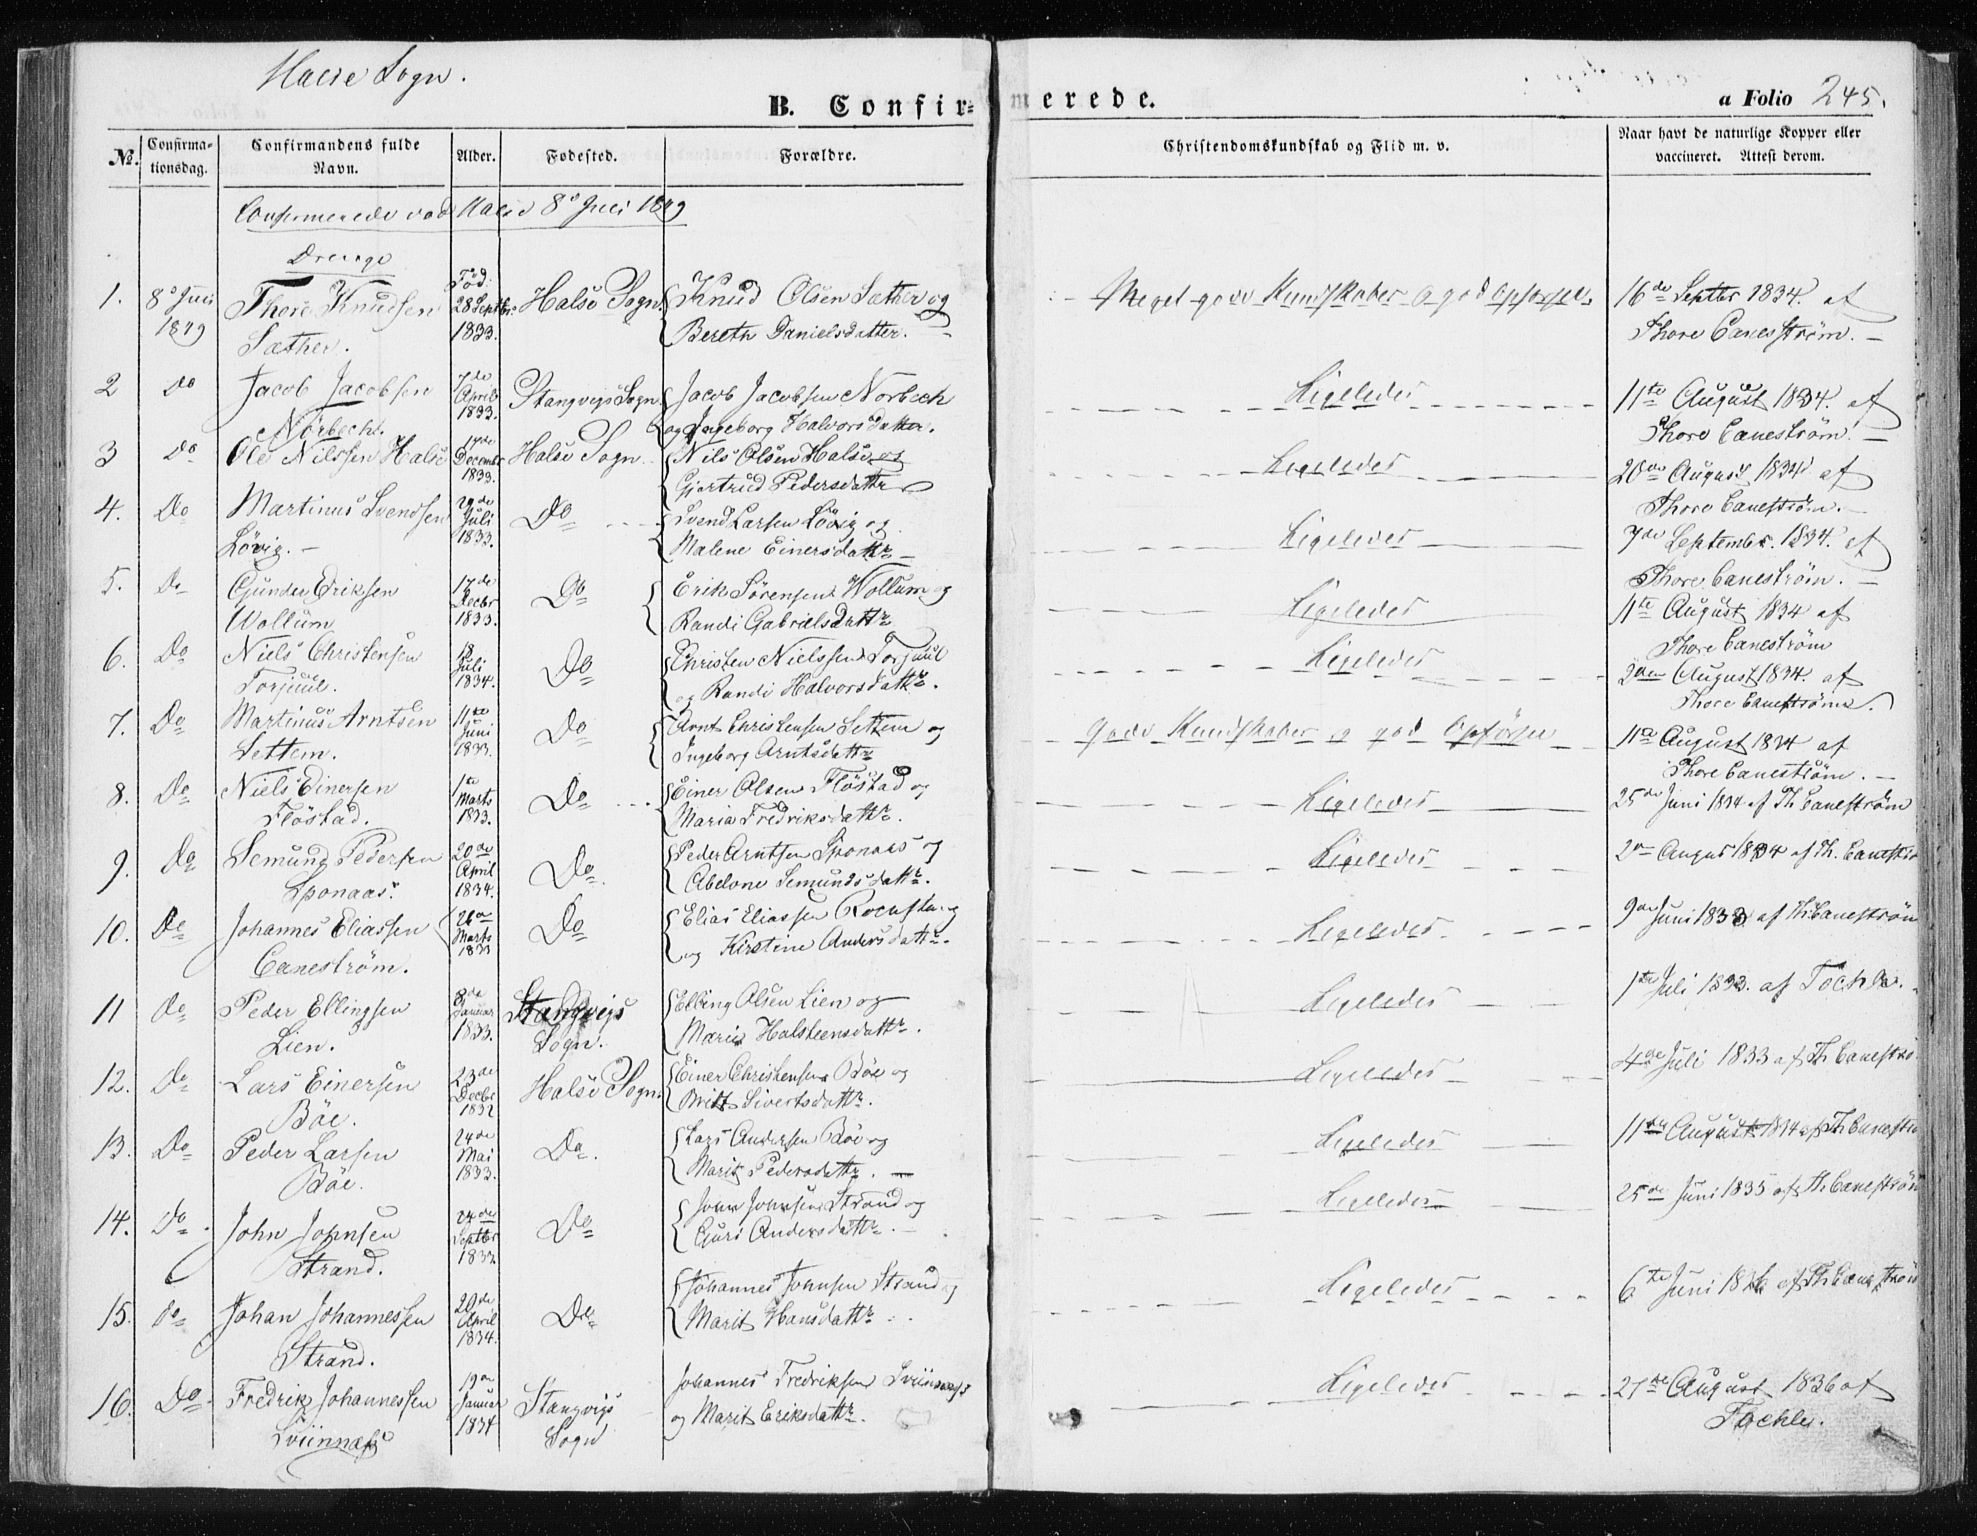 Halse Sogn.
B. Confirmerede.
a Folio 245.
No. Confirmationsdag. Confirmandens fulde Navn. Alder. Fødested. Forældre. Christendomskundskab og Flid m. v. Naar havt de naturlige Kopper eller vaccineret. Attest derom.
Confirmerede ved Halse 8de Juli 1849
Drenge
1. 8de Juli 1849 Thore Knudsen Sæther. Fød. 28 Septbr. 1833. Halse Sogn. Knud Olsen Sæther og Bereth Danielsdatter. Meget gode Kundskaber og god Opførsel. 16de Septbr 1834. af Thore Canestrøm.
2 Do Jacob Jacobsen Norbech. 7de April 1833. Stangvigs Sogn. Jacob Jacobsen Norbech og Ingeborg Halvorsdatter. Ligeledes 11te August 1834. af Thore Canestrøm.
3 Do Ole Nilssen Halse 14de Decembr 1833. Halse Sogn Nils Olsen Halse og Gjertrud Pedersdattr Ligeledes 20de August 1834 af Thore Canestrøm.
4. Do Martinus Svendsen Løvig. 29de Juli 1833. Do Svend Larsen Løvig og Malene Einersdattr Ligeledes 7de Septembr. 1834. af Thore Canestrøm.
5. Do Gunder Eriksen Wollum 17de Decbr 1833. Do Erik Sørensen Wollum og Randi Gabrielsdattr Ligeledes 11te August 1834 af Thore Canestrøm
6. Do Niels Christensen Torjuul. 18 Juli 1834. Do Christen Nielssen Torjuul og Randi Halvorsdattr. Ligeledes 2den August 1834. af Thore Canestrøm.
7. Do Martinus Arntsen Settem. 11te Juni 1833. Do Arnt Christensen Settem og Ingeborg Arntsdattr Gode Kundskaber og god Opførsel 11te August 1834 af Thore Canestrøm.
8. Do Niels Einersen Fløstad. 1te Marts 1833. Do Einer Olsen Fløstad og Maria Fredriksdattr. Ligeledes 25de Juni 1834 af Th. Canestrøm
9. Do Semund Pedersen Sponaas. 20de April 1834. Do. Peder Arntsen Sponaas og Abelone Semundsdattr. Ligeledes 2den August 1834 af Th. Canestrø
10. Do Johannes Eliassen Canestrøm. 26de Marts 1833 Do Elias Eliassen og Kirstine Andersdattr. Ligeledes 9de Juni 1833 af Th. Canestrøm
11 Do Peder Ellingsen Lien. 8de Januar 1833. Stangvigs Sogn. Elling Olsen Lien og Marie Halsteensdattr. Ligeledes 1te Juli 1833. af Tochle.
12. Do Lars Einersen Böe. 23de Decbr 1832 Halse Sogn. Einer Christensen Böe og Britt Sivertsdattr. Ligeledes 4de Juli 1833 af Th. Canestrø
13. Do Peder Larsen Böe. 24de Mai 1833. Do. Lars Andersen Böe og Marit Pedersdattr. Ligeledes 11te August 1834 af Th. Canestrø
14. Do. John Johnsen Strand. 24de Septbr 1833 Do John Johnsen Strand og Guri Andersdattr. Ligeledes 25de Juni 1835 af Th. Canestrøm
15. Do Johan Johannessen Strand. 20de April 1834. Do. Johannes Johnsen Strand og Marit Hansdattr. Ligeledes 6te Juni 1836 af Th. Canestrøm
16. Do Fredrik Johannessen Sviinnæss 19de Januar 1834 Stangvigs Sogn Johannes Fredriksen Sviinnæss og Marit Eriksdattr. Ligeledes 27de August 1836 af Tochle.